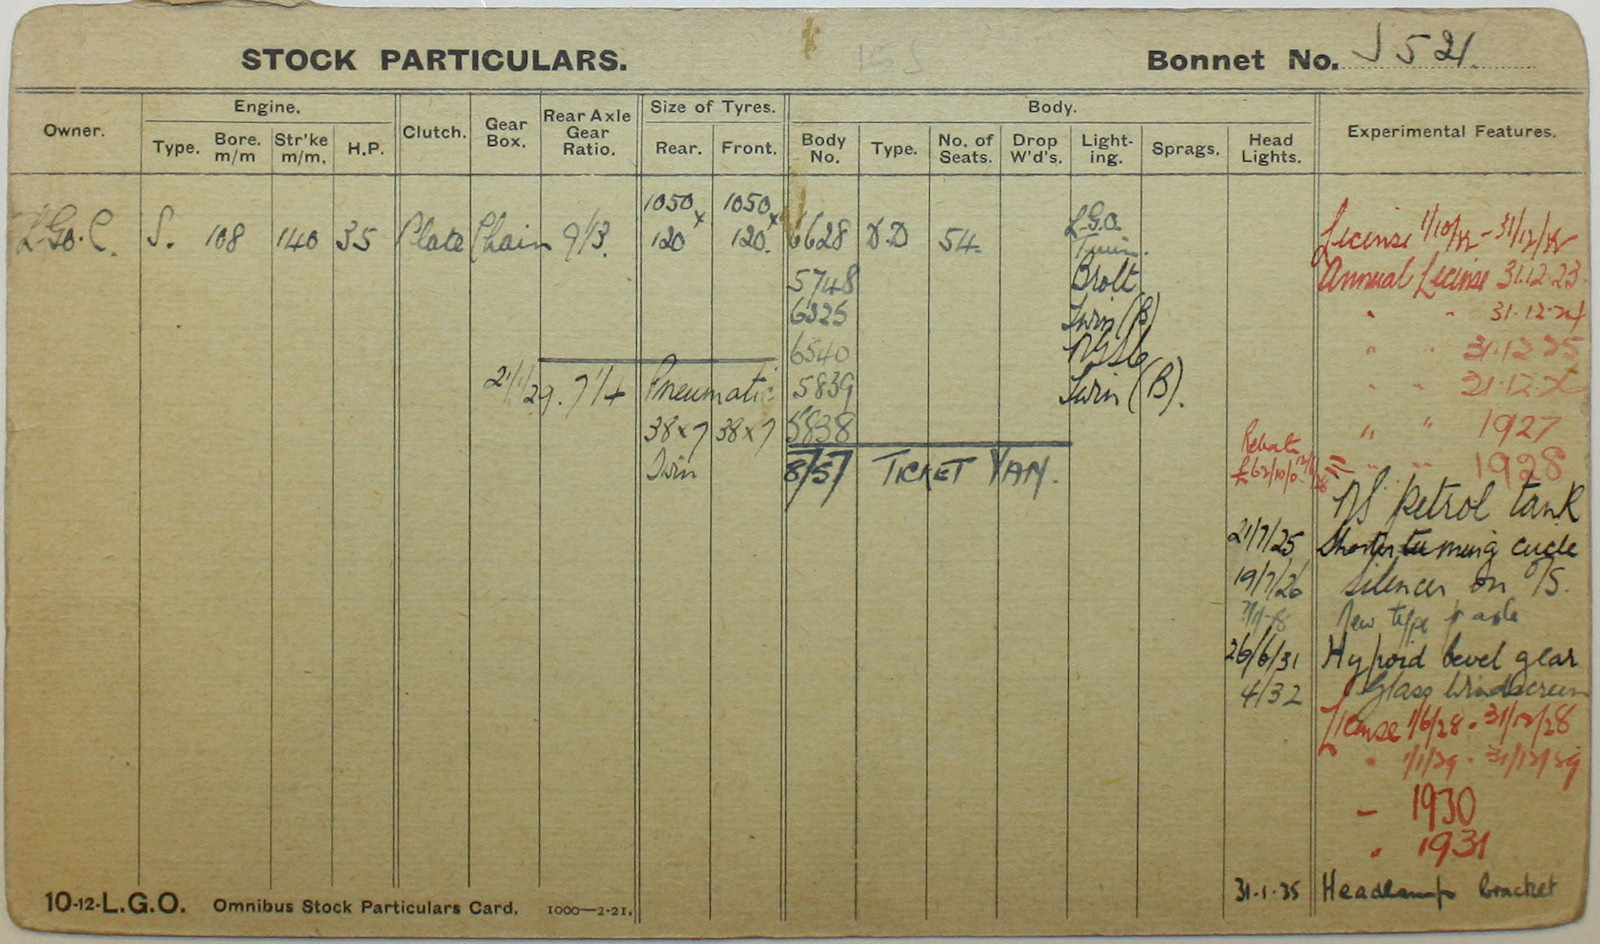 STOCK PARTICULARS. Bonnet No. S 521.
Owner. Engine. Clutch. Gear Box. Rear Axle Gear Ratio. Size of Tyres. Body. Experimental Features.
Type. Bore. m/m Str'ke m/m. H.P. Rear. Front. Body No. Type. No. of Seats. Drop W'd's. Light-ing. Sprags. Head Lights.
L.G.O.C. S. 108 140 35 Plate Chain 9/13. 1050 x 120 1050 x 120. 6628 D.D 54. L.G.O. Twin.
License 1/10/22 - 31/12/22
5748 Brolt
Annual License 31.12.23
6325 Twin (B)
" " 31.12.24
6540 N.S.
" " 31.12.25
21/1/29. 7/4 Pneumatic 5839 Twin (B).
" "
38 x 7 38 x 7 5838
" " 1927
Twin 8/57 TICKET VAN.
Rebate £62/10/0
" " 1928
NS petrol tank
21/7/25 Shorter turning circle
19/7/26 Silencer on O/S.
New type axle
26/6/31 Hypoid bevel gear
4/32 Glass Windscreen
License 1/6/28 - 31/12/28
" 1/1/29 - 31/12/29
" 1930
" 1931
31.1.35 Headlamp bracket
10-12-L.G.O. Omnibus Stock Particulars Card. 1000—2-21.